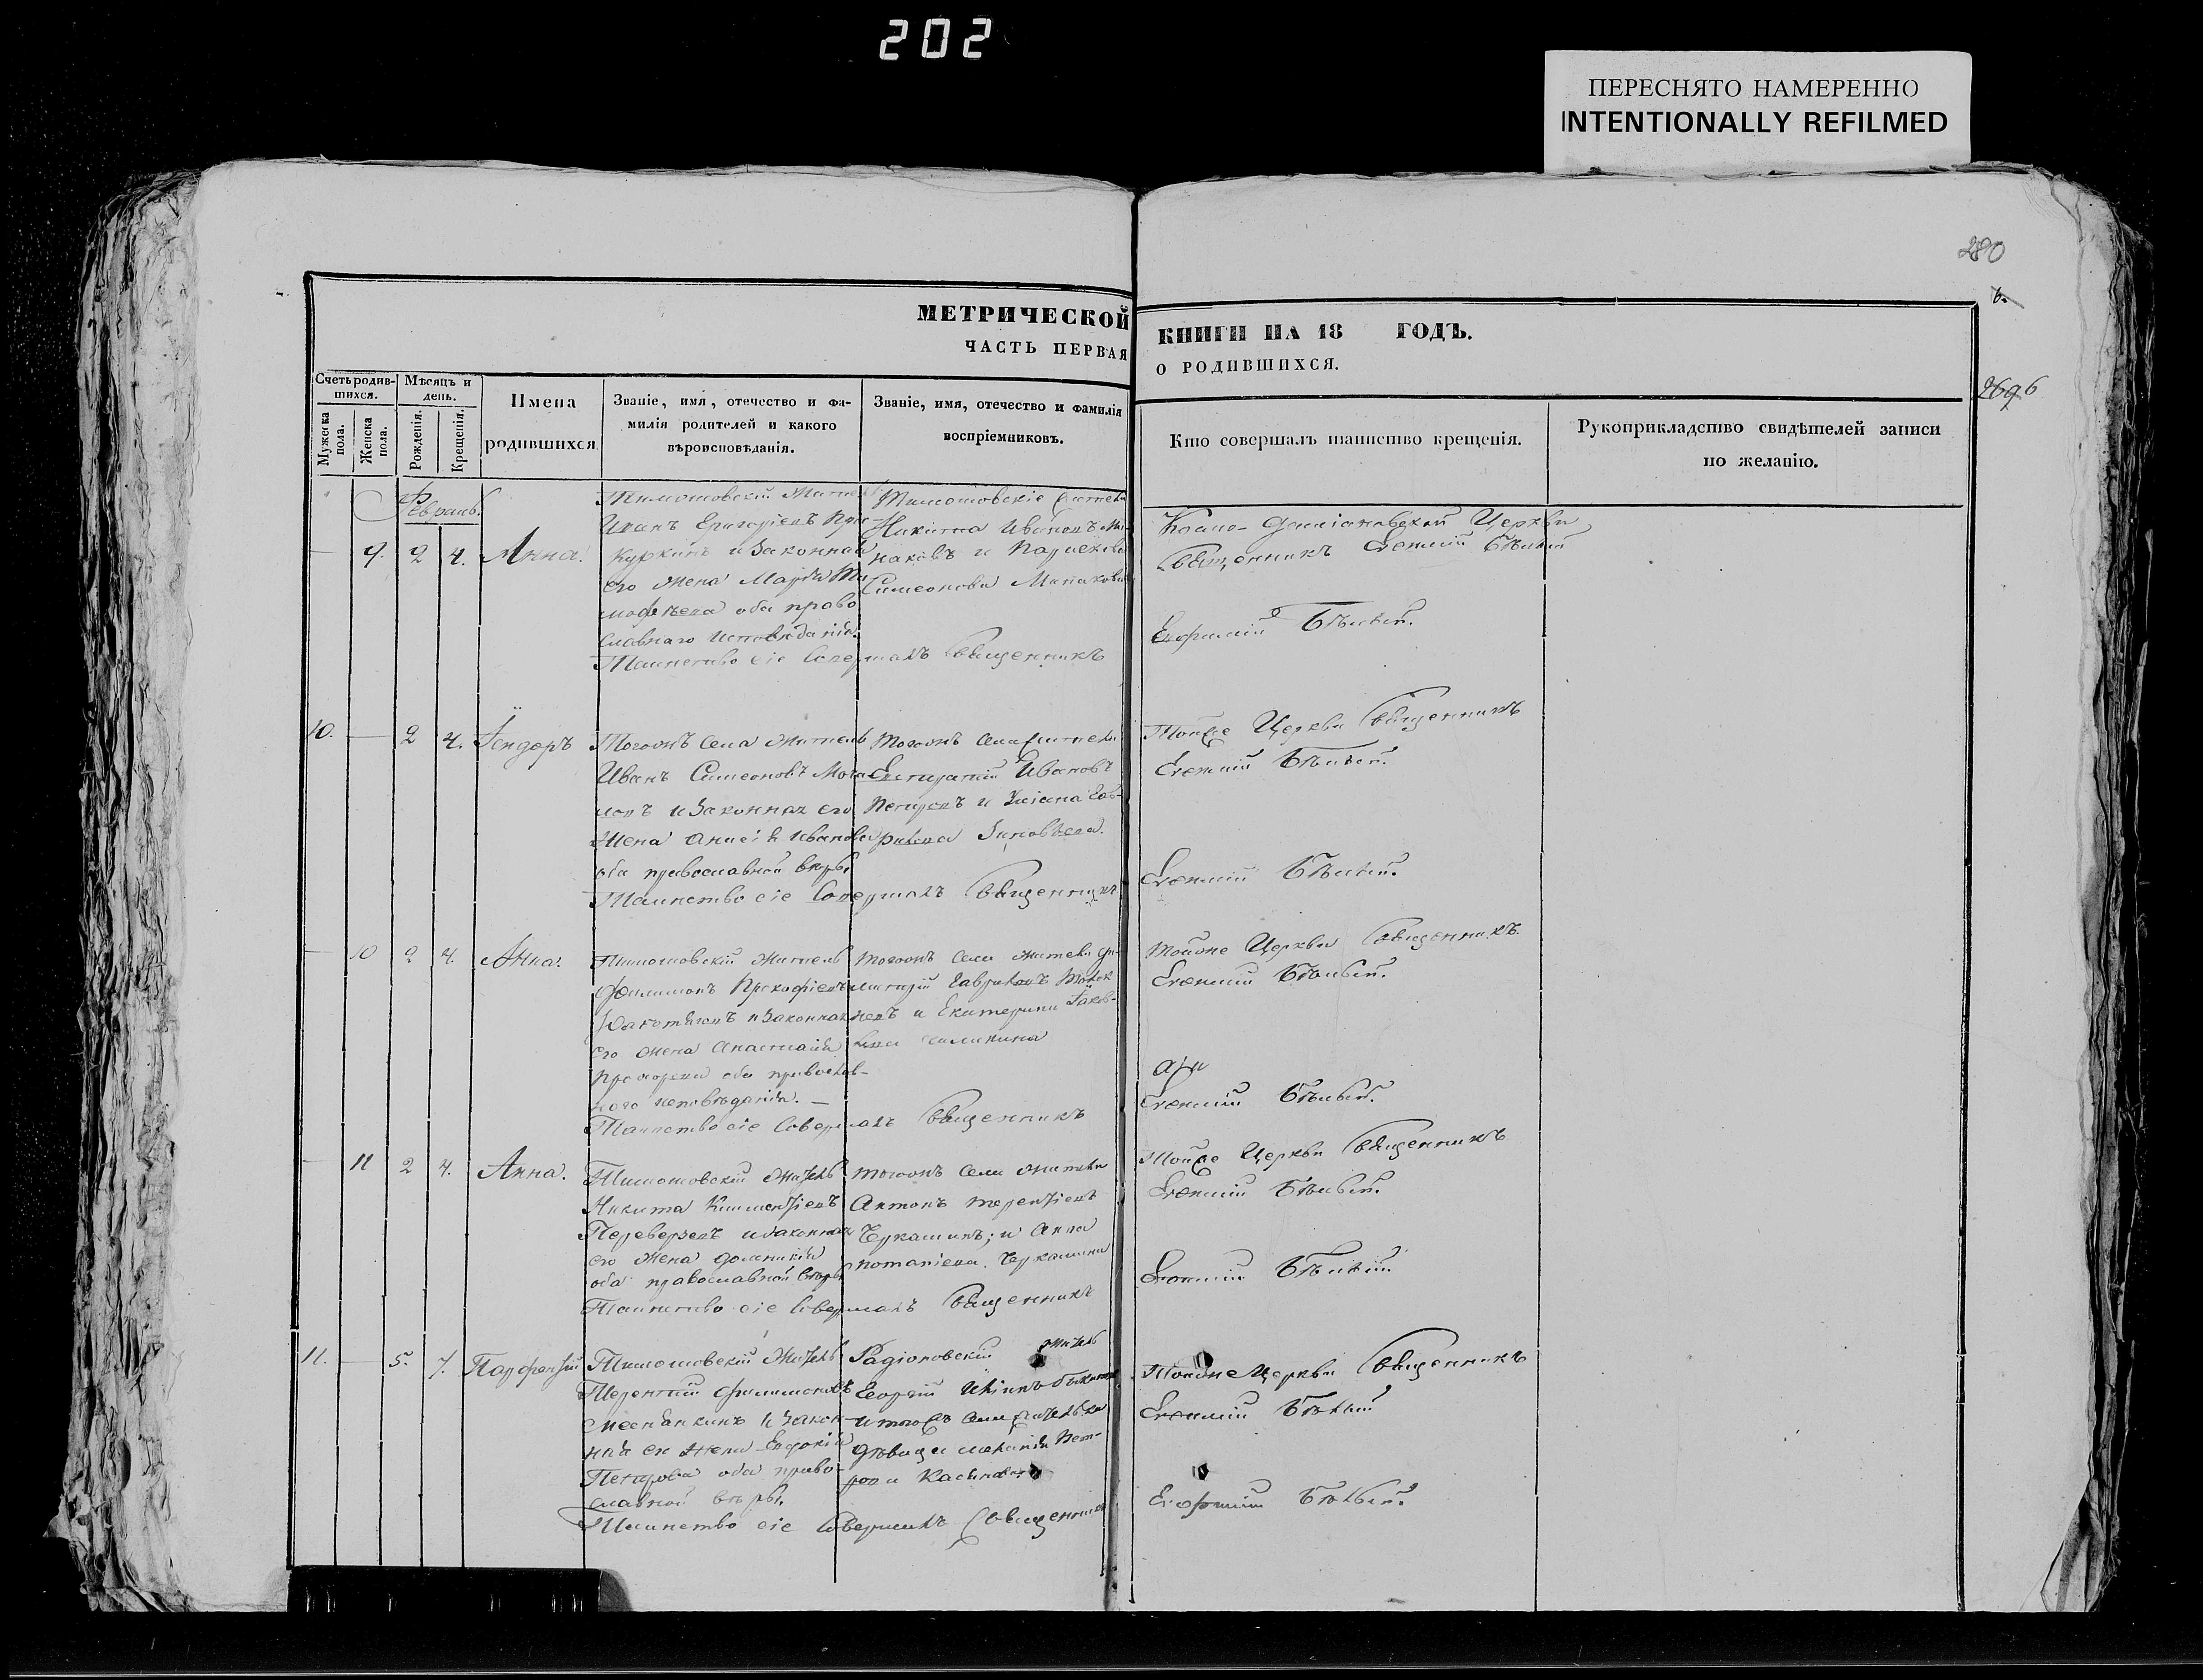 202
ПЕРЕСНЯТО НАМЕРЕННО
INTENTIONALLY REFILMED
280
6.
2696
МЕТРИЧЕСКОЙ КНИГИ НА 18 ГОДЪ.
ЧАСТЬ ПЕРВАЯ О РОДИВШИХСЯ.
Счетъ родив-
шихся.
Мужеска пола.
Женска пола.
Мѣсяцъ и
день.
Рожденія.
Крещенія.
Имена
родившихся
Званіе, имя, отечество и фа-
милія родителей и какого
вѣроисповѣданія.
Званіе, имя, отечество и фамилія
воспріемниковъ.
Кто совершалъ таинство крещенія.
Рукоприкладство свидѣтелей записи
по желанію.
Февраль.
9. 2 4. Анна.
Иванъ Григоріевъ
и законная
его жена Марѳа Ти
моѳѣева оба право
славнаго исповѣданія.
Таинство сіе совершалъ Священникъ
Никита Ивановъ
и Параскева
Симеонова Минакова
Козмо-Даміановской Церкви
Священникъ Евѳимій Бѣлый
Евфимій Бѣлый.
10. 2 4. Ѳеодоръ
Тогожъ села житель
Иванъ Симеоновъ
и законная его
жена Анисія Иванова
оба православной вѣры
Таинство сіе совершалъ Священникъ
Тогожъ села жители
Евстратій Ивановъ
Петровъ и Уліана Гав-
рилова Зиновѣева.
Тойже Церкви Священникъ
Евѳимій Бѣлый.
Евѳимій Бѣлый.
10 2 4. Анна.
Тимошовскій житель
Филимонъ Прокофіевъ
и законная
его жена Анастасія
оба православ-
наго исповѣданія. —
Таинство сіе совершалъ Священникъ
тогожъ села жители Ди-
митрій Гавриловъ
и Екатерина Іаков-
лева
Тойже Церкви Священникъ
Евѳимій Бѣлый.
Евѳимій Бѣлый.
11 2 4. Анна.
Тимошовскій житель
Никита Климентіевъ
Переверзевъ и законная
его жена Домникія
оба православной вѣры
Таинство сіе совершалъ Священникъ
тогожъ села жители
Антонъ Терентіевъ
Черкашинъ; и Анна
Потапіева Черкашина
Тойже Церкви Священникъ
Евѳимій Бѣлый.
Евѳимій Бѣлый.
11. 5. 7. Парфентій
Тимошовскій житель
Терентій Филимоновъ
и закон-
ная его жена Евдокія
Петрова оба право-
славной вѣры.
Таинство сіе совершалъ Священникъ
Радіоновскій житель
Георгій
и тогожъ села
дѣвица Меланія Пет-
рова
Тойже Церкви Священникъ
Евѳимій Бѣлый
Евфимій Бѣлый.